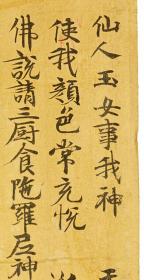 仙人玉女事我神
使我顏色常充悦
佛説請三厨食陁羅尼神